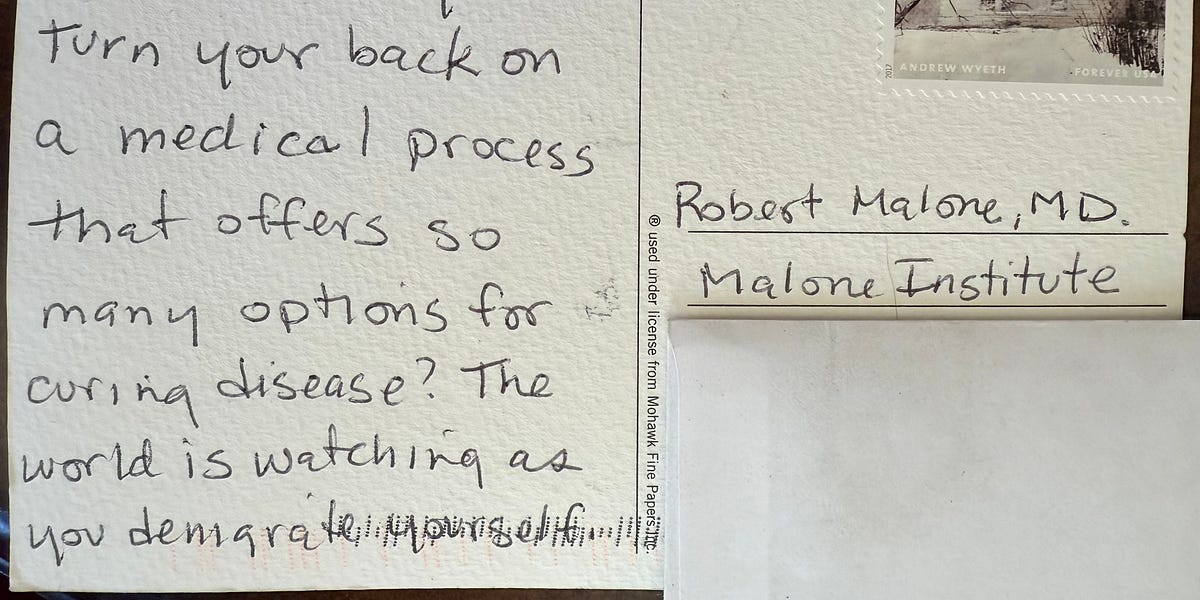 turn your back on
a medical process
that offers so
many options for
curing disease? The
world is watching as
you demgrate yourself.
2017
ANDREW WYETH
FOREVER USA
Robert Malone, MD.
Malone Institute
® used under license from Mohawk Fine Papers, Inc.